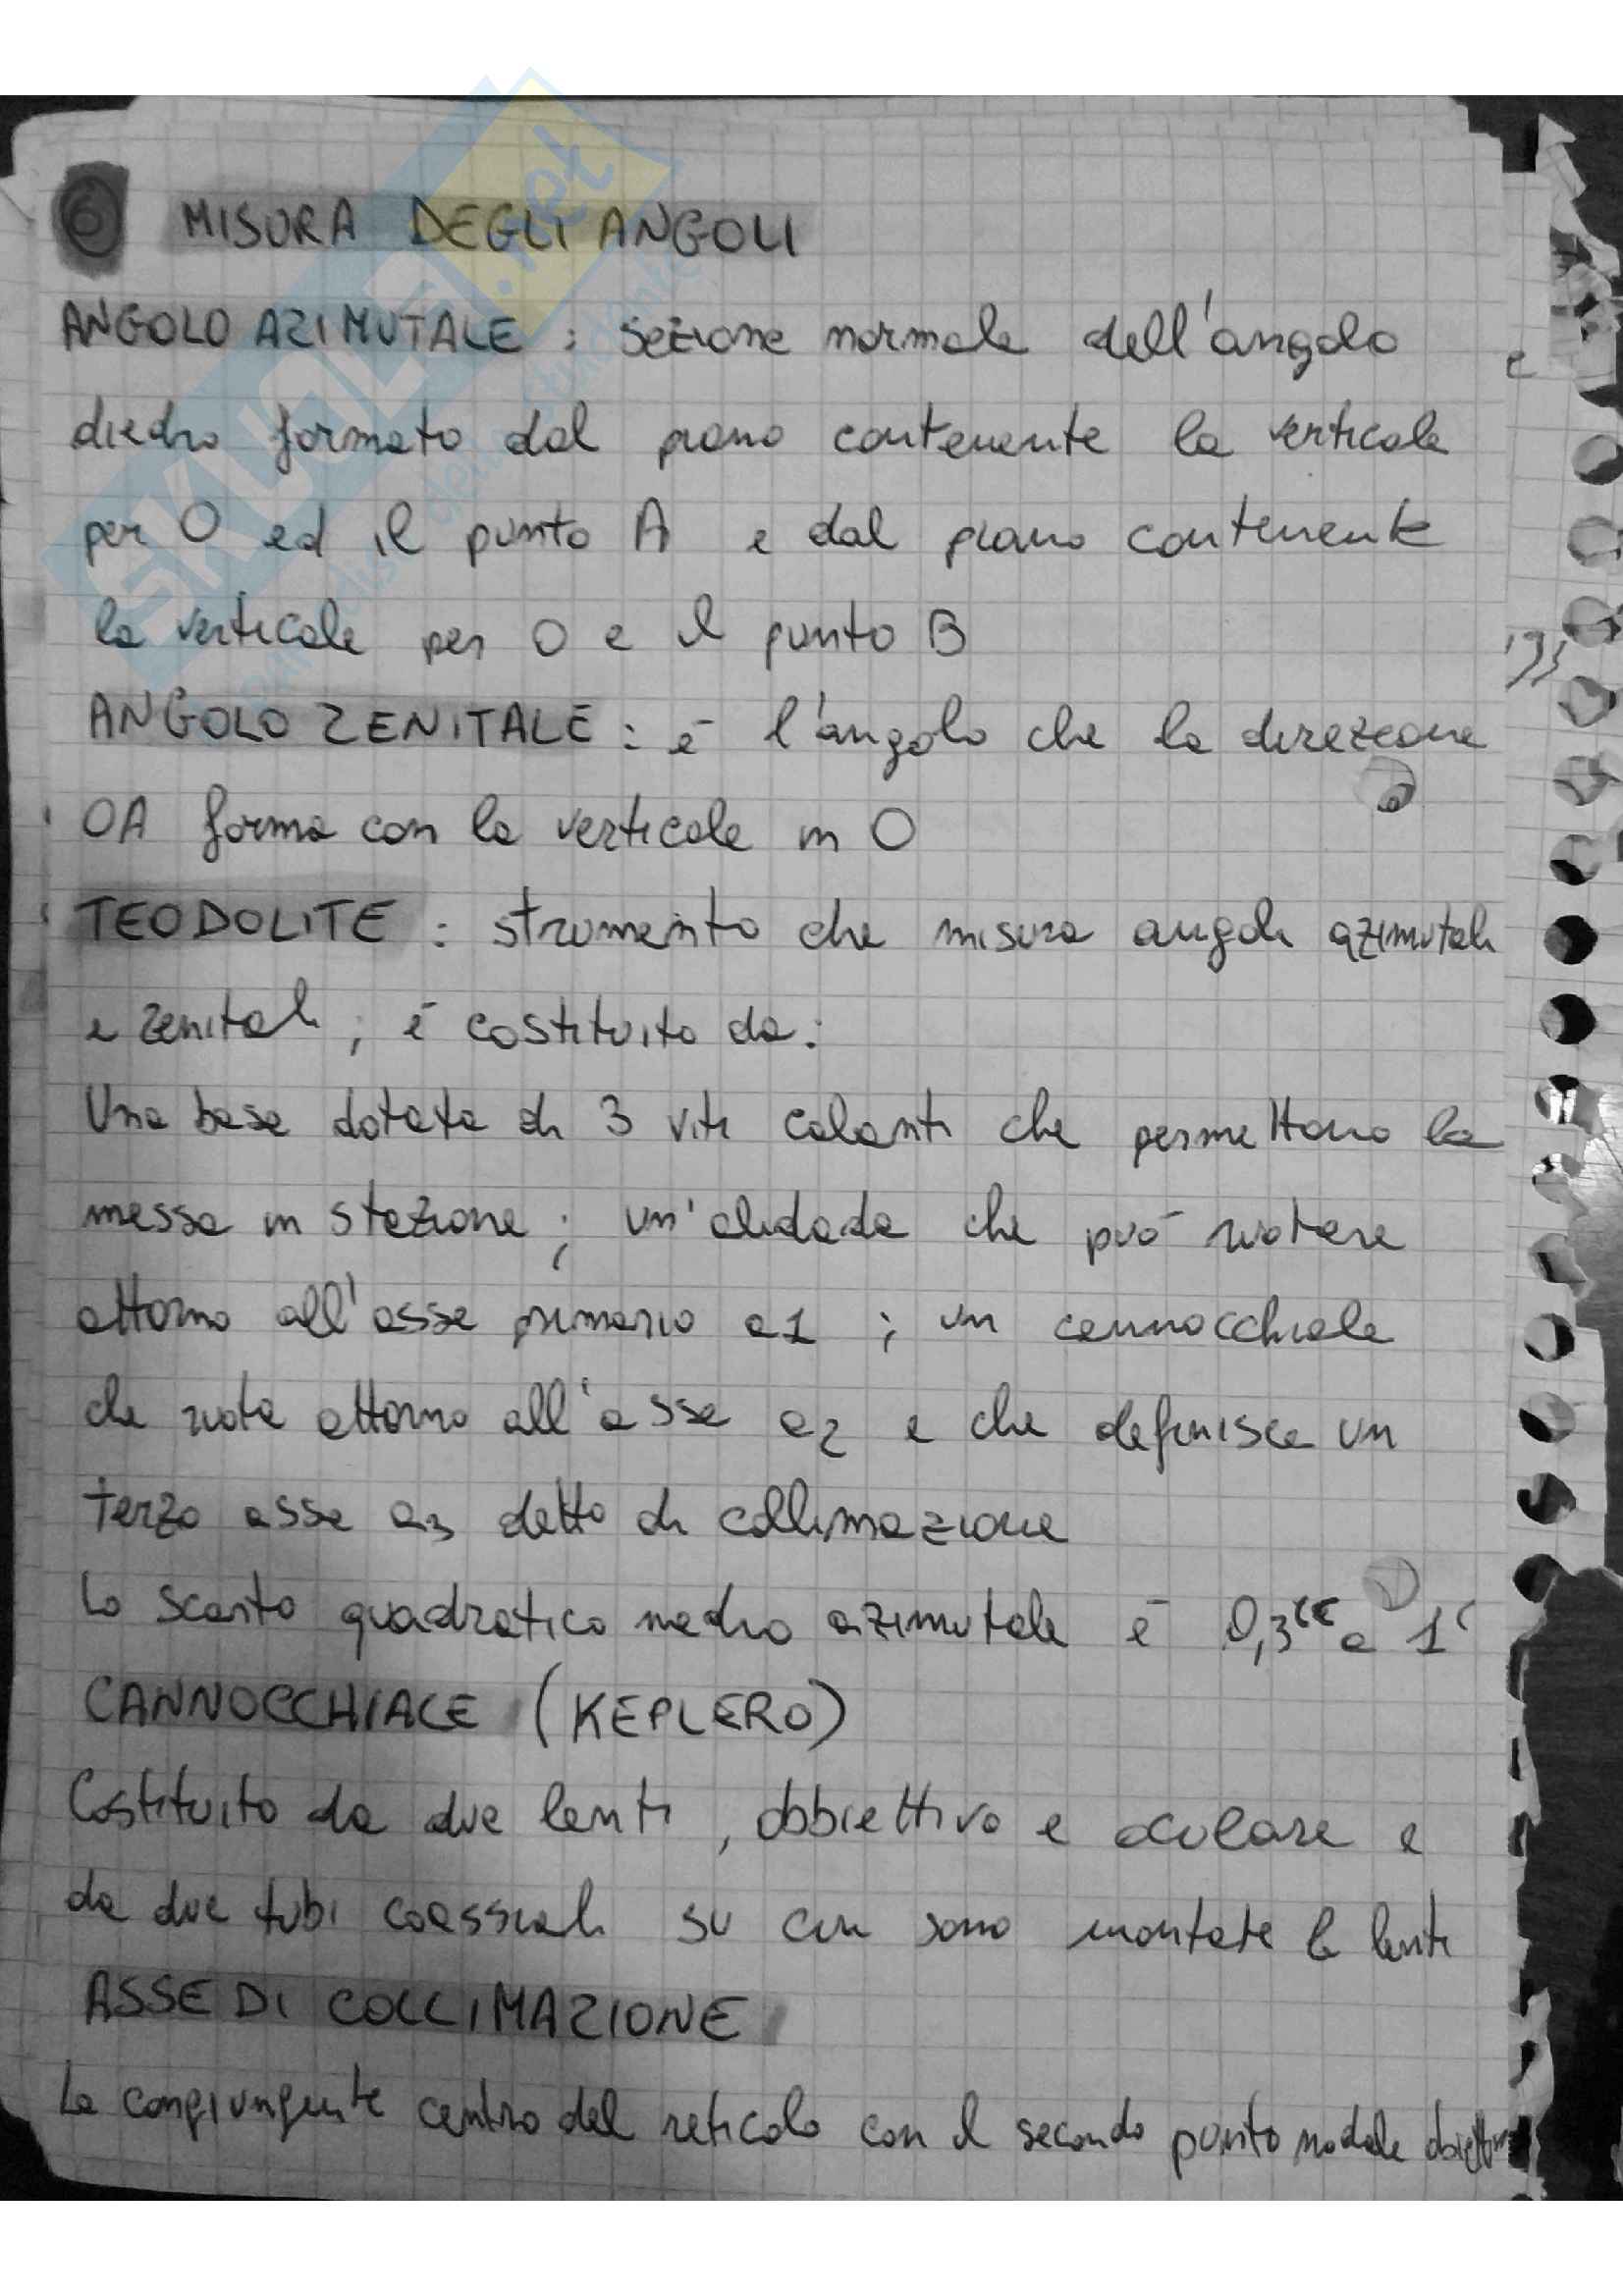 6 MISURA DEGLI ANGOLI
ANGOLO AZIMUTALE : sezione normale dell'angolo
diedro formato dal piano contenente la verticale
per O ed il punto A e dal piano contenente
la verticale per O e il punto B
ANGOLO ZENITALE : è l'angolo che la direzione
OA forma con la verticale in O
TEODOLITE : strumento che misura angoli azimutali
e zenitali ; è costituito da :
Una base dotata di 3 viti calanti che permettono la
messa in stazione ; un'alidada che può ruotare
attorno all'asse primario a1 ; un cannocchiale
che ruota attorno all'asse a2 e che definisce un
terzo asse a3 detto di collimazione
Lo scarto quadratico medio azimutale è 0,3ᶜᶜ a 1ᶜ
CANNOCCHIALE (KEPLERO)
Costituito da due lenti , obbiettivo e oculare e
da due tubi coassiali su cui sono montate le lenti
ASSE DI COLLIMAZIONE
La congiungente centro del reticolo con il secondo punto nodale obiettivo
SKUOLA.net